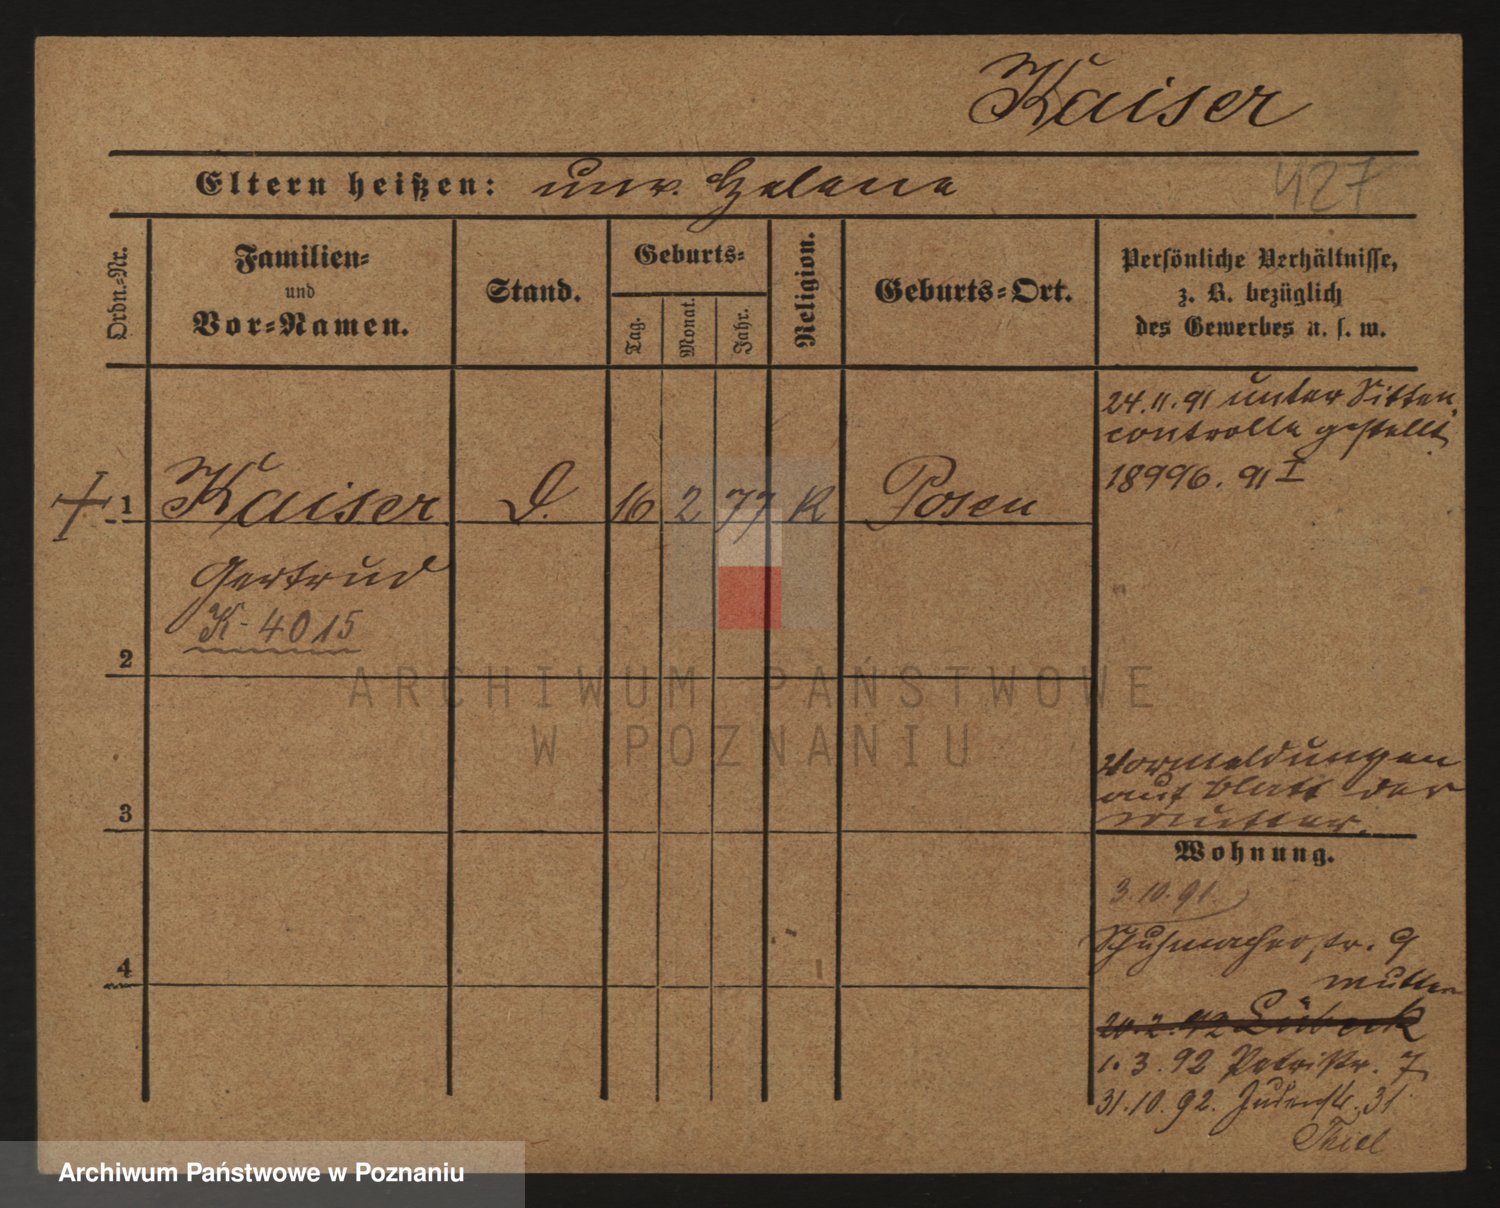 Kaiser
Eltern heißen: unv. Helene
427
Ordn.-Nr.
Familien-
und
Vor-Namen.
Stand.
Geburts-
Tag.
Monat.
Jahr.
Religion.
Geburts-Ort.
Persönliche Verhältnisse,
z. B. bezüglich
des Gewerbes u. s. w.
24.11.91 unter Sitten
controlle gestellt
18996. 91 I
1 Kaiser D. 16 2 77 K Posen
Gertrud
K- 4015
2
3
4
Vormeldungen
auf Blatt der
Mutter.
Wohnung.
3.10.91.
Schuhmacherstr. 9
Mutter
20.2.92 Lübeck
1.3.92 Petristr. 7
31.10.92. Judenstr. 31
Thiel
ARCHIWUM PAŃSTWOWE
W POZNANIU
Archiwum Państwowe w Poznaniu